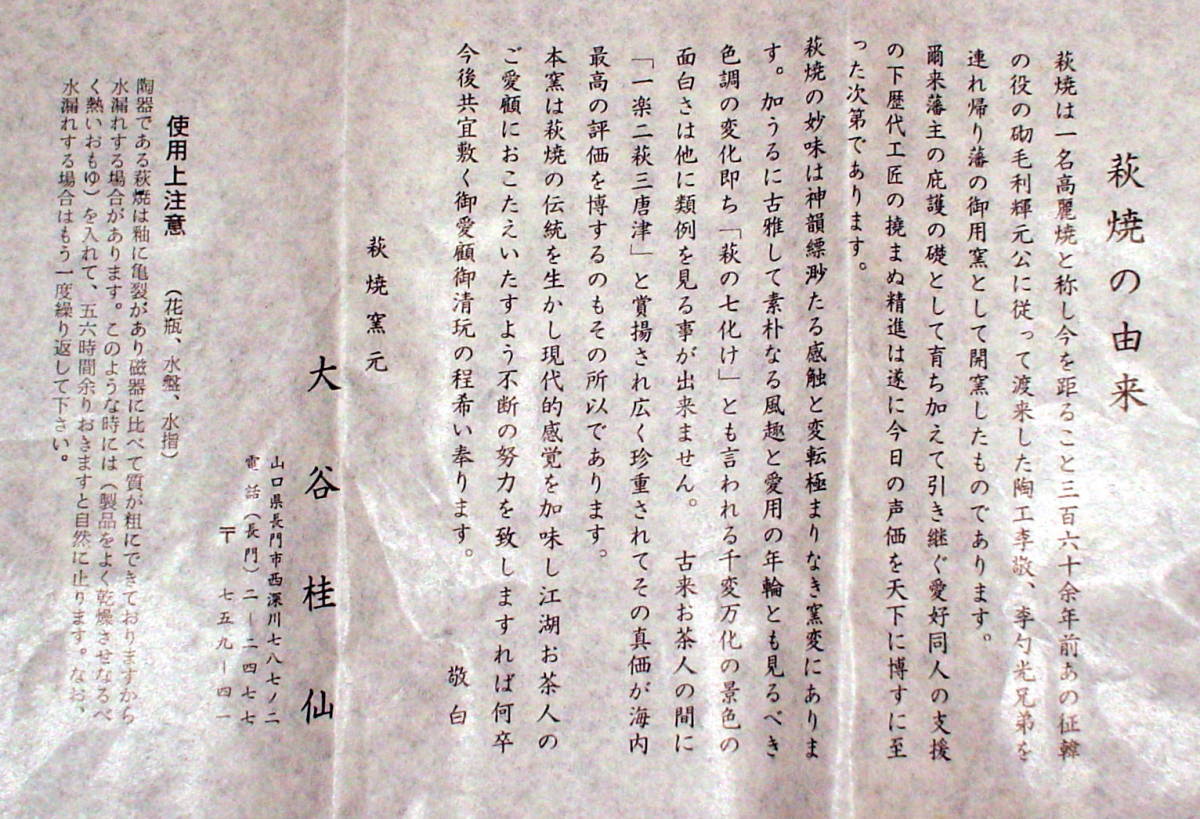 萩焼の由来
萩焼は一名高麗焼と称し今を距ること三百六十余年前あの征韓
の役の砌毛利輝元公に従って渡来した陶工李敬、李勺光兄弟を
連れ帰り藩の御用窯として開窯したものであります。
爾来藩主の庇護の礎として育ち加えて引き継ぐ愛好同人の支援
の下歴代工匠の撓まぬ精進は遂に今日の声価を天下に博すに至
った次第であります。
萩焼の妙味は神韻縹渺たる感触と変転極まりなき窯変にありま
す。加うるに古雅して素朴なる風趣と愛用の年輪とも見るべき
色調の変化即ち「萩の七化け」とも言われる千変万化の景色の
面白さは他に類例を見る事が出来ません。 古来お茶人の間に
「一楽二萩三唐津」と賞揚され広く珍重されてその真価が海内
最高の評価を博するのもその所以であります。
本窯は萩焼の伝統を生かし現代的感覚を加味し江湖お茶人の
ご愛顧におこたえいたすよう不断の努力を致しますれば何卒
今後共宜敷く御愛顧御清玩の程希い奉ります。
敬白
萩焼窯元
大谷桂仙
山口県長門市西深川七八七ノ二
電話(長門)二-二四七七
〒 七五九-四一
使用上注意 (花瓶、水盤、水指)
陶器である萩焼は釉に亀裂があり磁器に比べて質が粗にできておりますから
水漏れする場合があります。このような時には(製品をよく乾燥させなるべ
く熱いおもゆ)を入れて、五六時間余りおきますと自然に止ります。なお、
水漏れする場合はもう一度繰り返して下さい。